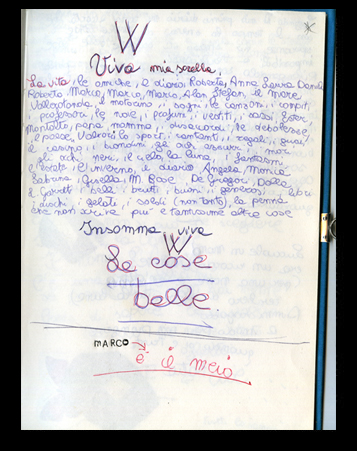 W
Viva mia sorella,
La vita, le amiche, il diario, Roberta, Anna Laura, Daniela
Roberto Marco, Mario, Marco, Alan, Stefan, il mare
Vallerotonda, il motorino, i sogni, le canzoni, i compiti,
i professori, le rose, i profumi, i vestiti, i sassi,
Montalto, papà, mamma, i dinosauri, le
il paese, Valerio lo sport, i cantanti, i regali, i guai,
il casino, i biondini, gli occhi azzurri, i mori
gli occhi neri, il cielo, la luna, i fantasmi
l'estate, l'inverno, il diario Angela Monica
Sabrina, Gisella, M. Rose De Gregori, Dalla
i belli i brutti, i buoni, i generosi, i libri
i dischi, i gelati, i soldi (non tanto), la penna
che non scrive più e tantissime altre cose
Insomma viva
W
Le cose
belle.
MARCO →
è il meio